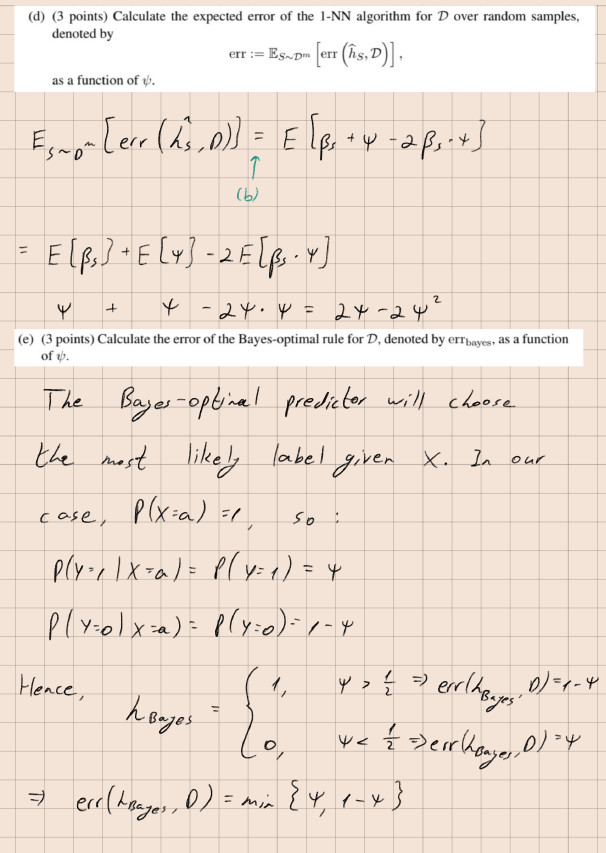 (d) (3 points) Calculate the expected error of the 1-NN algorithm for D over random samples,
denoted by
err := E_{S∼D^m} [err (ĥ_S, D)],
as a function of ψ.
E_{S∼D^m} [err (ĥ_S, D)] = E [β_S + ψ - 2β_S·ψ]
↑
(b)
= E[β_S] + E[ψ] - 2E[β_S·ψ]
ψ + ψ - 2ψ·ψ = 2ψ - 2ψ²
(e) (3 points) Calculate the error of the Bayes-optimal rule for D, denoted by err_bayes, as a function
of ψ.
The Bayes-optimal predictor will choose
the most likely label given X. In our
case, P(X=a) = 1, so :
P(Y=1 | X=a) = P(Y=1) = ψ
P(Y=0 | X=a) = P(Y=0) = 1-ψ
Hence, h_Bayes = { 1, ψ > 1/2 ⇒ err(h_Bayes, D) = 1-ψ
0, ψ < 1/2 ⇒ err(h_Bayes, D) = ψ
⇒ err(h_Bayes, D) = min {ψ, 1-ψ}